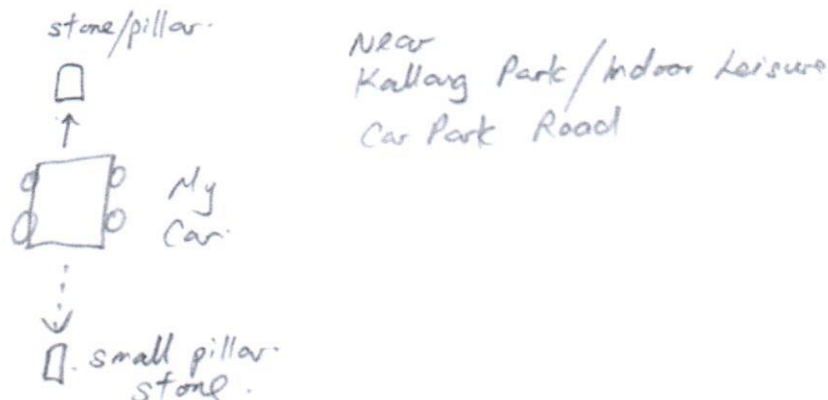 stone/pillar.
Near
Kallang Park/Indoor Leisure
Car Park Road
My
Car.
small pillar.
stone.